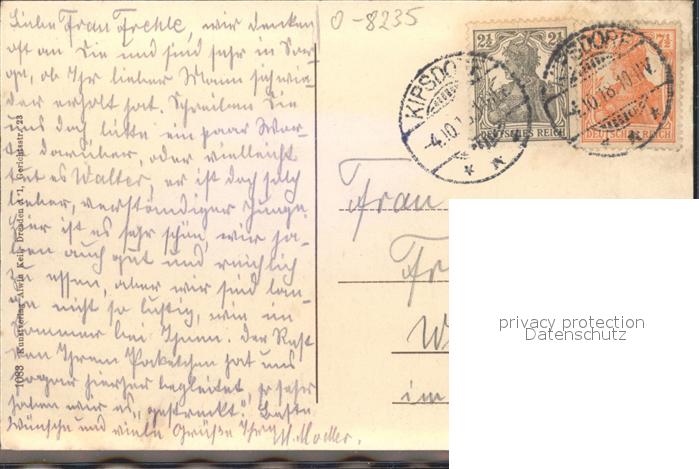 O-8235
Liebe Frau Frehle, wir denken
oft an Sie und sind sehr in Sor-
ge, ob Ihr lieber Mann sich wie-
der erholt hat. Schreiben Sie
uns doch bitte ein paar Wor-
te darüber, oder vielleicht
tut es Walter, er ist doch solch
lieber, verständiger Junge.
Hier ist es sehr schön, wir ha-
ben auch gut und reichlich
zu essen, aber wir sind lan-
ge nicht so lustig, wie im
Sommer bei Ihnen. Der Rest
von Ihrem Paketchen hat uns
sogar hierher begleitet, so sehr
haben wir es "gestreckt". Beste
Wünsche und viele Grüße Ihre
1088 Kunstverlag Alwin Keil, Dresden-A. 1, Gerichtsstr. 23
2½ 2½
DEUTSCHES REICH
7½
DEUTSCHES REICH
KIPSDORF
-4.10.18
KIPSDORF
-4.10.18.
Frau
im
privacy protection
Datenschutz